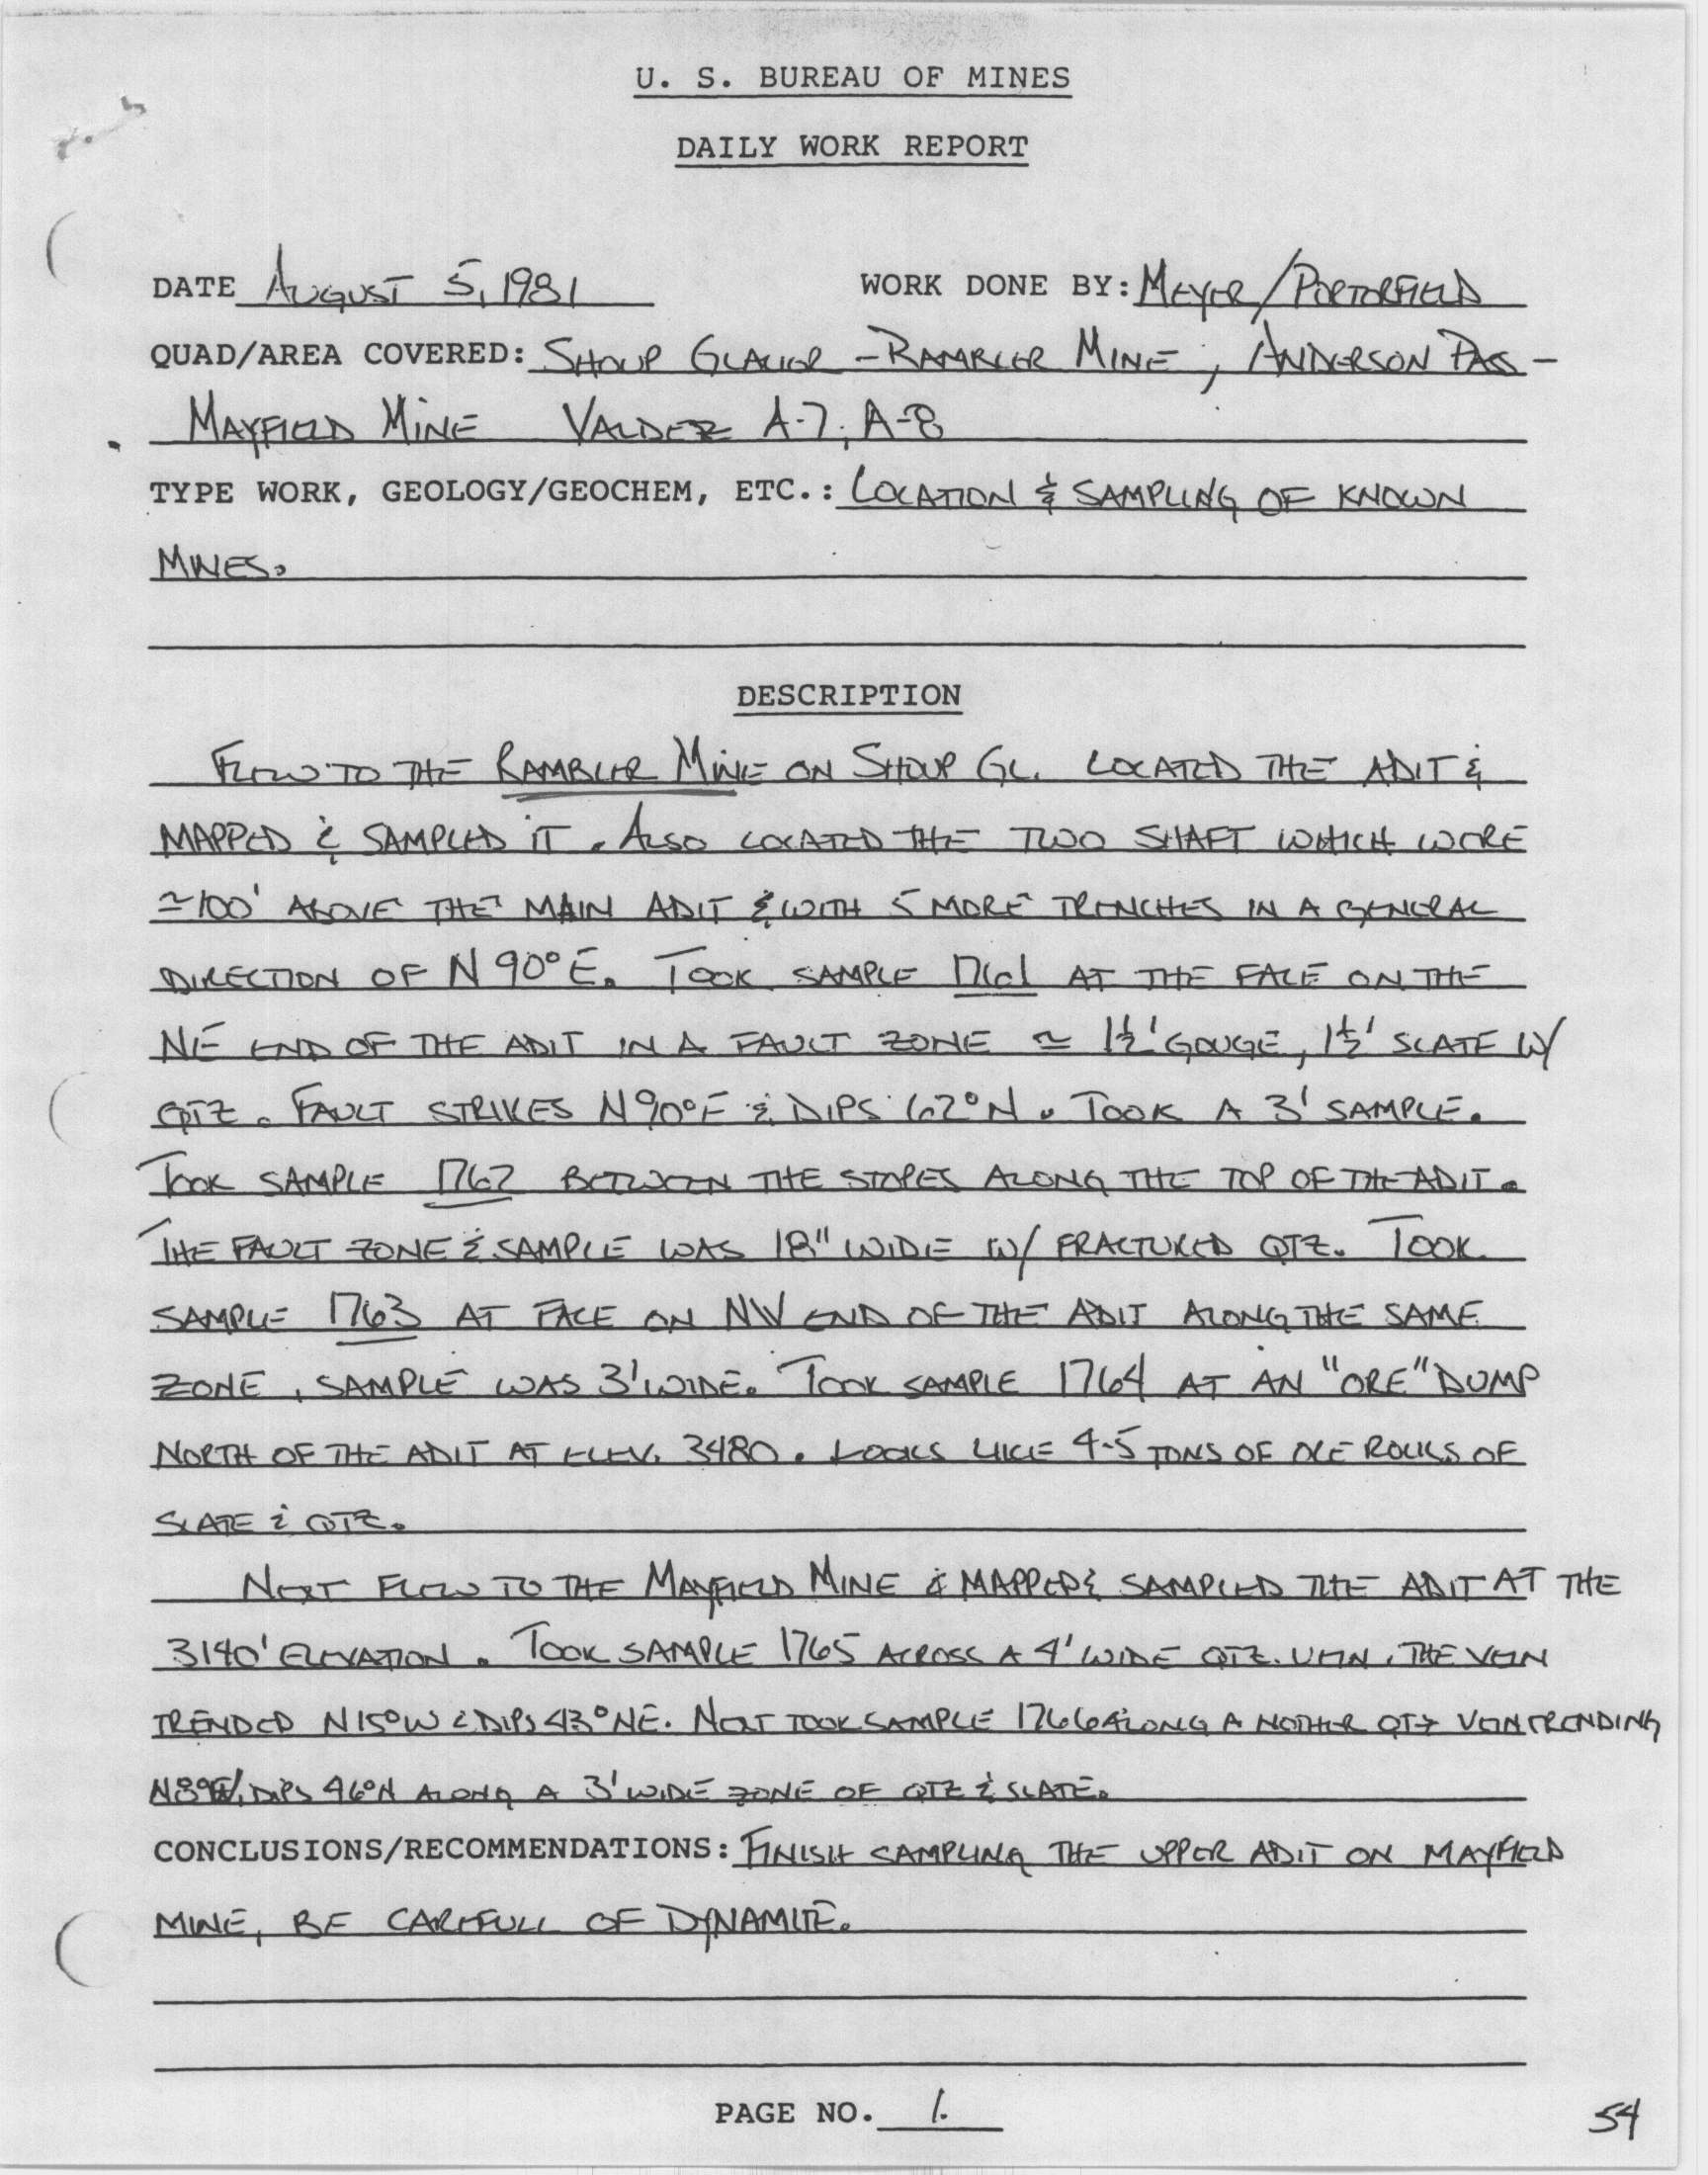 U. S. BUREAU OF MINES
DAILY WORK REPORT
DATE AUGUST 5, 1981 WORK DONE BY: MEYER/PORTORFIELD
QUAD/AREA COVERED: SHOUP GLACIER - RAMBLER MINE; ANDERSON PASS -
MAYFIELD MINE VALDEZ A-7, A-8
TYPE WORK, GEOLOGY/GEOCHEM, ETC.: LOCATION & SAMPLING OF KNOWN
MINES.
DESCRIPTION
FLEW TO THE RAMBLER MINE ON SHOUP GL. LOCATED THE ADIT &
MAPPED & SAMPLED IT. ALSO LOCATED THE TWO SHAFT WHICH WERE
≃100' ABOVE THE MAIN ADIT & WITH 5 MORE TRENCHES IN A GENERAL
DIRECTION OF N 90° E. TOOK SAMPLE 1761 AT THE FACE ON THE
NE END OF THE ADIT IN A FAULT ZONE ≃ 1½' GOUGE, 1½' SLATE W/
QTZ. FAULT STRIKES N90°E & DIPS 62°N. TOOK A 3' SAMPLE.
TOOK SAMPLE 1762 BETWEEN THE STOPES ALONG THE TOP OF THE ADIT.
THE FAULT ZONE & SAMPLE WAS 18" WIDE W/ FRACTURED QTZ. TOOK
SAMPLE 1763 AT FACE ON NW END OF THE ADIT ALONG THE SAME
ZONE, SAMPLE WAS 3' WIDE. TOOK SAMPLE 1764 AT AN "ORE" DUMP
NORTH OF THE ADIT AT ELEV. 3480. LOOKS LIKE 4-5 TONS OF ORE ROCKS OF
SLATE & QTZ.
NEXT FLEW TO THE MAYFIELD MINE & MAPPED & SAMPLED THE ADIT AT THE
3140' ELEVATION. TOOK SAMPLE 1765 ACROSS A 4' WIDE QTZ. VEIN. THE VEIN
TRENDED N15°W & DIPS 43°NE. NEXT TOOK SAMPLE 1766 ALONG A NOTHER QTZ VEIN TRENDING
DIPS 46°N ALONG A 3' WIDE ZONE OF QTZ & SLATE.
CONCLUSIONS/RECOMMENDATIONS: FINISH SAMPLING THE UPPER ADIT ON MAYFIELD
MINE, BE CAREFULL OF DYNAMITE.
PAGE NO. 1.
54